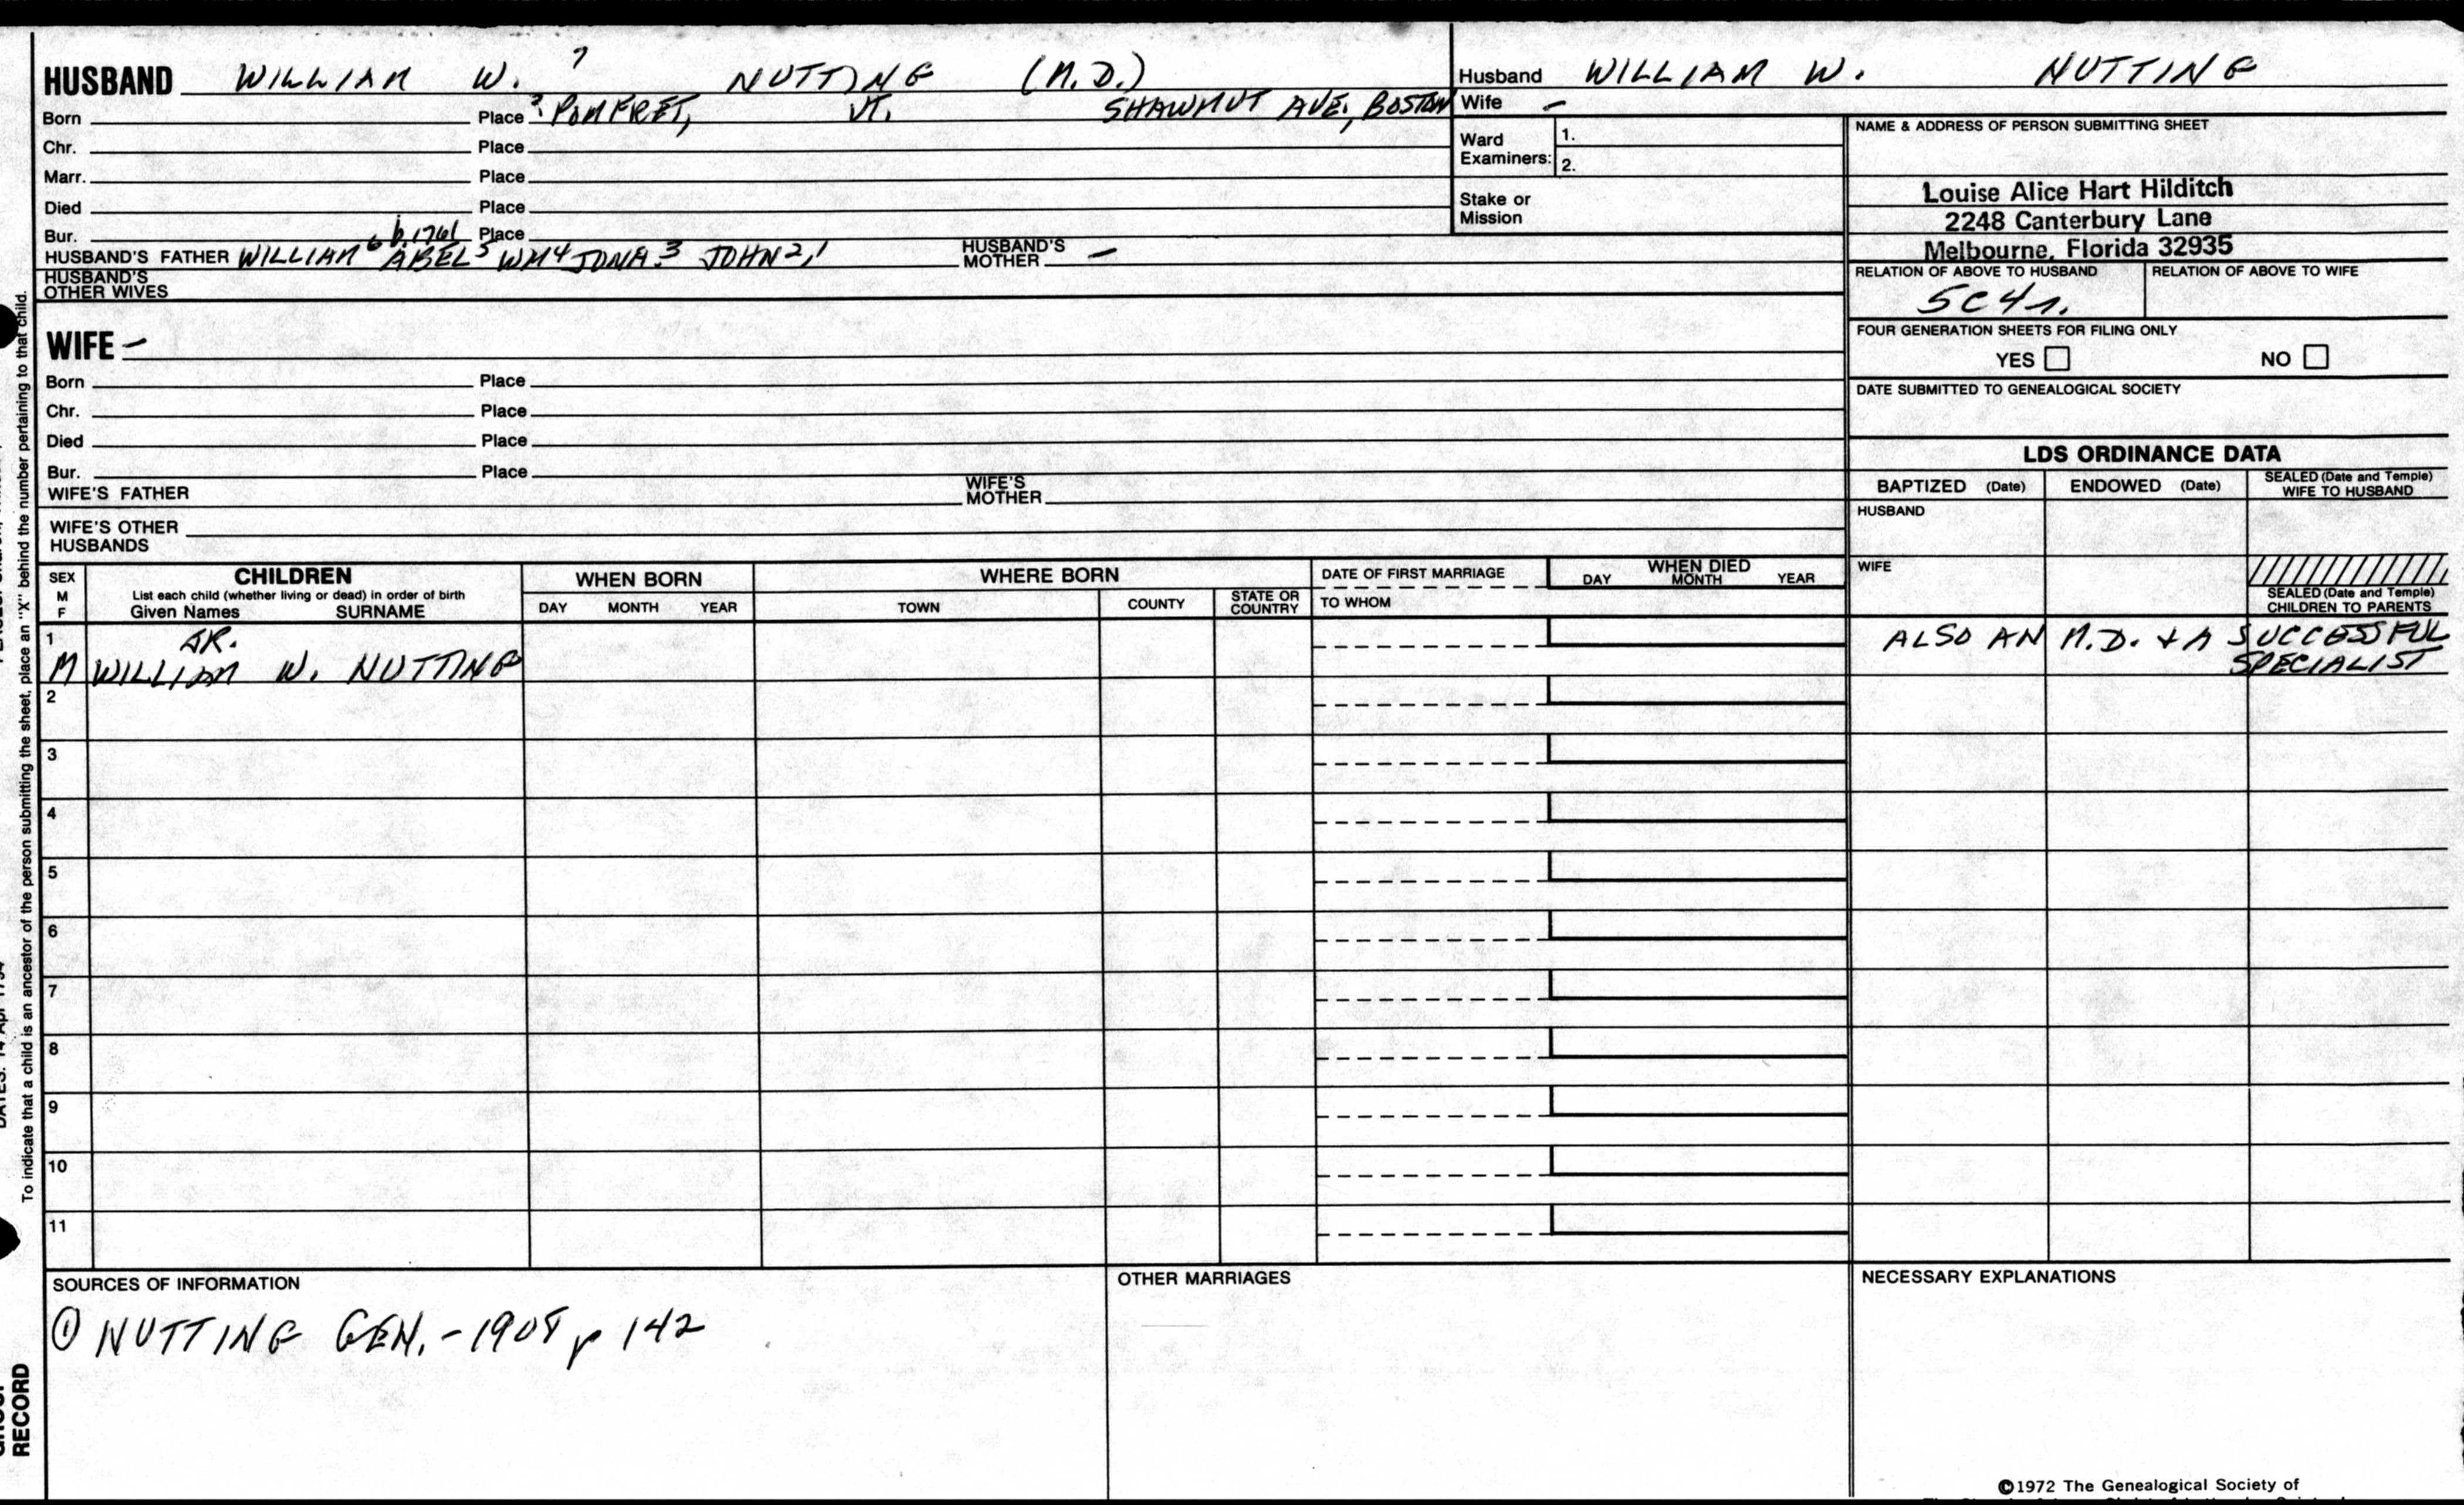 ?
HUSBAND WILLIAM W. NUTTING (M.D.)
Born Place ? POMFRET, VT. SHAWMUT AVE., BOSTON
Chr. Place
Marr. Place
Died Place
Bur. Place
b. 1761
HUSBAND'S FATHER WILLIAM6 ABEL5 WM4 JONA.3 JOHN2,1 HUSBAND'S MOTHER —
HUSBAND'S
OTHER WIVES
WIFE –
Born Place
Chr. Place
Died Place
Bur. Place
WIFE'S FATHER WIFE'S MOTHER
WIFE'S OTHER
HUSBANDS
Husband WILLIAM W. NUTTING
Wife –
Ward
Examiners:
1.
2.
Stake or
Mission
NAME & ADDRESS OF PERSON SUBMITTING SHEET
Louise Alice Hart Hilditch
2248 Canterbury Lane
Melbourne, Florida 32935
RELATION OF ABOVE TO HUSBAND RELATION OF ABOVE TO WIFE
5C4r.
FOUR GENERATION SHEETS FOR FILING ONLY
YES NO
DATE SUBMITTED TO GENEALOGICAL SOCIETY
LDS ORDINANCE DATA
BAPTIZED (Date) ENDOWED (Date) SEALED (Date and Temple)
WIFE TO HUSBAND
HUSBAND
WIFE
SEALED (Date and Temple)
CHILDREN TO PARENTS
SEX
M
F
CHILDREN
List each child (whether living or dead) in order of birth
Given Names SURNAME
WHEN BORN
DAY MONTH YEAR
WHERE BORN
TOWN COUNTY STATE OR COUNTRY
DATE OF FIRST MARRIAGE
TO WHOM
WHEN DIED
DAY MONTH YEAR
1 JR. ALSO AN M.D. + A SUCCESSFUL
M WILLIAM W. NUTTING SPECIALIST
2
3
4
5
6
7
8
9
10
11
SOURCES OF INFORMATION
① NUTTING GEN. - 1908 p 142
OTHER MARRIAGES
NECESSARY EXPLANATIONS
©1972 The Genealogical Society of
To indicate that a child is an ancestor of the person submitting the sheet, place an "X" behind the number pertaining to that child.
RECORD